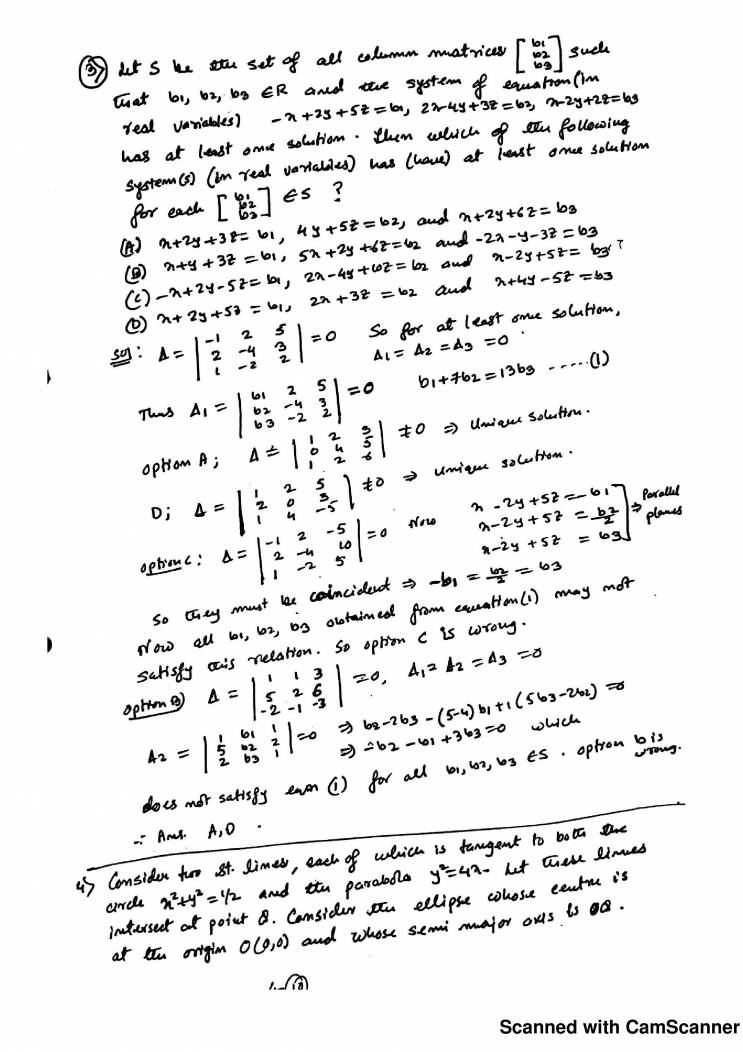 3) Let S be the set of all column matrices [b1 b2 b3] such
that b1, b2, b3 ∈R and the system of equation (in
real variables) -x+2y+5z=b1, 2x-4y+3z=b2, x-2y+2z=b3
has at least one solution. Then which of the following
system(s) (in real variables) has (have) at least one solution
for each [b1 b2 b3] ∈S ?
(A) x+2y+3z=b1, 4y+5z=b2, and x+2y+6z=b3
(B) x+y+3z=b1, 5x+2y+6z=b2 and -2x-y-3z=b3
(C) -x+2y-5z=b1, 2x-4y+10z=b2 and x-2y+5z=b3 ?
(D) x+2y+5z=b1, 2x+3z=b2 and x+4y-5z=b3
Sol: Δ= |-1 2 5; 2 -4 3; 1 -2 2| =0 So for at least one solution,
Δ1=Δ2=Δ3=0
Thus Δ1= |b1 2 5; b2 -4 3; b3 -2 2| =0 b1+7b2=13b3 -----(1)
option A; Δ= |1 2 3; 0 4 5; 1 2 6| ≠0 ⇒ Unique solution.
D; Δ= |1 2 5; 2 0 3; 1 4 -5| ≠0 ⇒ Unique solution.
option C: Δ= |-1 2 -5; 2 -4 10; 1 -2 5| =0 Now x-2y+5z=-b1
x-2y+5z=b2/2
x-2y+5z=b3 ⇒ Parallel planes
So they must be coincident ⇒ -b1=b2/2=b3
Now all b1, b2, b3 obtained from equation(1) may not
satisfy this relation. So option C is wrong.
option B) Δ= |1 1 3; 5 2 6; -2 -1 -3| =0, Δ1=Δ2=Δ3=0
Δ2= |1 b1 1; 5 b2 2; 2 b3 1| =0 ⇒ b2-2b3-(5-4)b1+1(5b3-2b2)=0
⇒ -b2-b1+3b3=0 which
does not satisfy eqn (1) for all b1, b2, b3 ∈S. option b is
wrong.
∴ Ans. A, D.
4) Consider two st. lines, each of which is tangent to both the
circle x²+y²=1/2 and the parabola y²=4x. Let these lines
intersect at point Q. Consider the ellipse whose centre is
at the origin O(0,0) and whose semi major axis is OQ.
Scanned with CamScanner